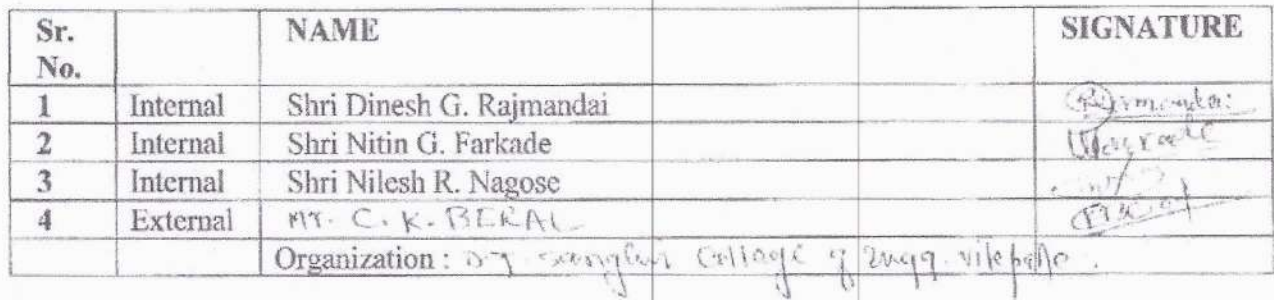 Sr. No. NAME SIGNATURE
1 Internal Shri Dinesh G. Rajmandai
2 Internal Shri Nitin G. Farkade
3 Internal Shri Nilesh R. Nagose
4 External Mr. C. K. BERAL
Organization : D J Sanghvi College of Engg. vileparle.